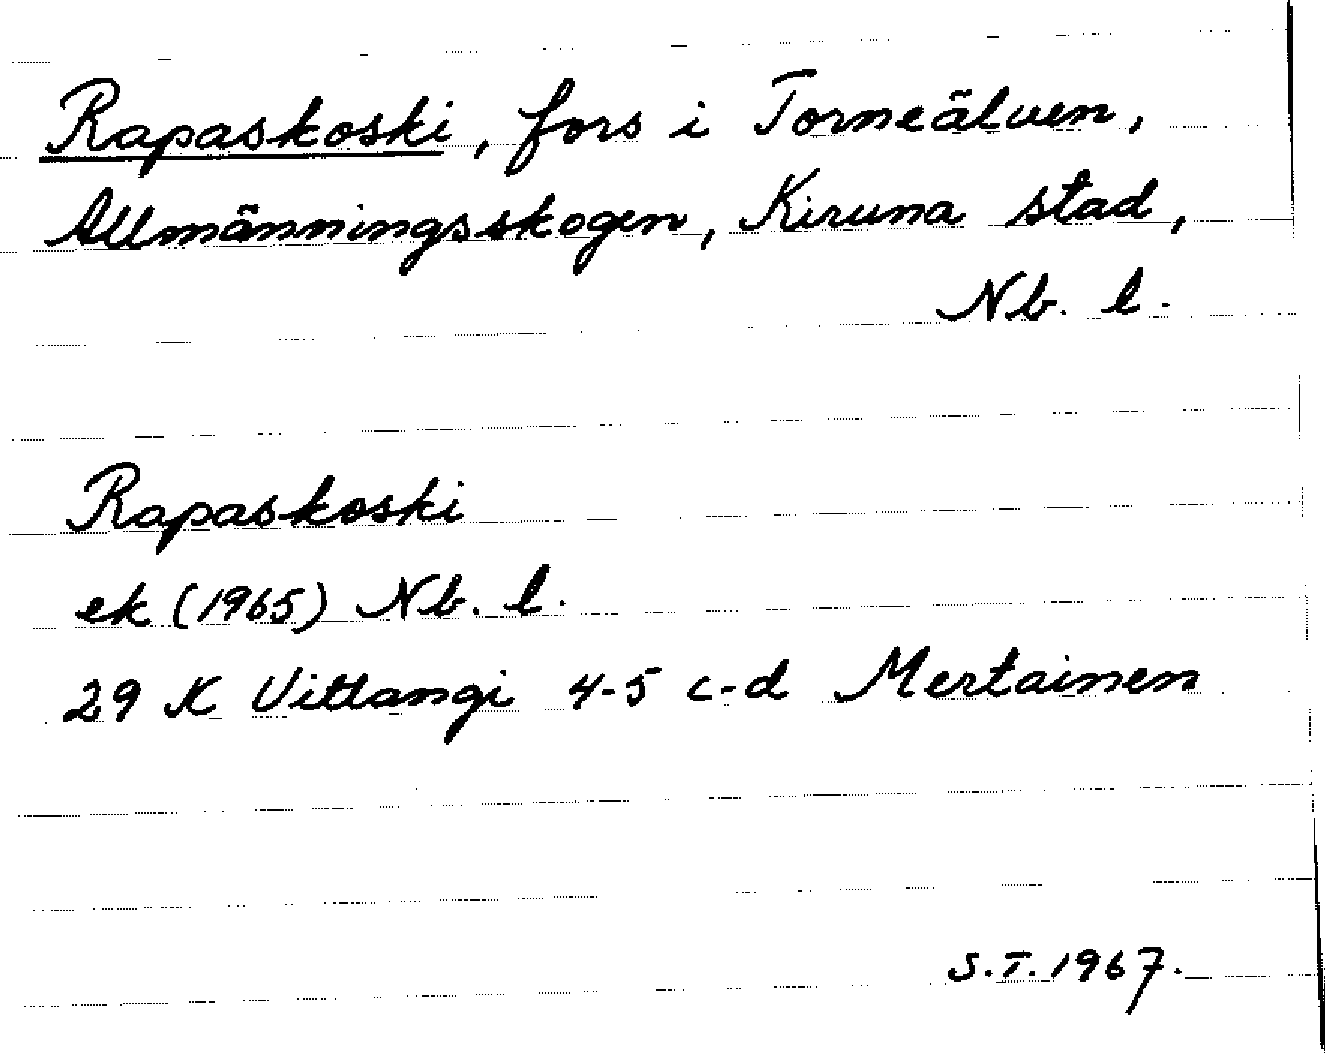 Rapaskoski, fors i Torneälven,
Allmänningsskogen, Kiruna stad,
Nb. l.
Rapaskoski
ek (1965) Nb. l.
29 K Vittangi 4-5 c-d Mertainen
S.T. 1967.